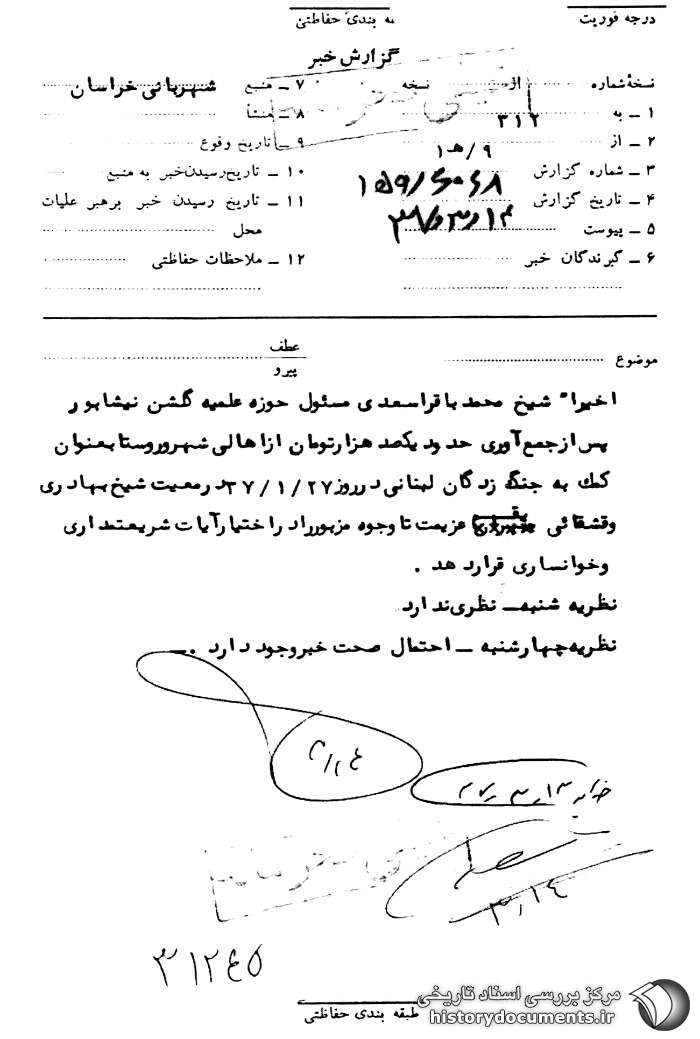 درجه فوریت
به بندی حفاظتی
گزارش خبر
نسخهٔ شماره از نسخه
۱ ــ به ۳۱۲
۲ ــ از ۹/ه۱
۳ ــ شماره گزارش
۴ ــ تاریخ گزارش
۵ ــ پیوست
۶ ــ گیرندگان خبر
۷ ــ منبع شهربانی خراسان
۸ ــ منشأ
۹ ــ تاریخ وقوع
۱۰ ــ تاریخ رسیدن خبر به منبع
۱۱ ــ تاریخ رسیدن خبر برهبر عملیات
محل
۱۲ ــ ملاحظات حفاظتی
موضوع
عطف
پیرو
اخیراً شیخ محمد باقر اسعدی مسئول حوزه علمیه گلشن نیشابور
پس از جمع آوری حدود یکصد هزار تومان از اهالی شهر و روستا بعنوان
کمك به جنگ زدگان لبنانی در روز ۳۷/۱/۲۷ در معیت شیخ بهادری
وقشقائی بقم عزیمت تا وجوه مزبور را در اختیار آیات شریعتمداری
وخوانساری قرار دهد .
نظریه شنبه ــ نظری ندارد
نظریه چهارشنبه ــ احتمال صحت خبر وجود دارد .ــ
۳/۱۴
۳۱۲۴۵
طبقه بندی حفاظتی
مرکز بررسی اسناد تاریخی
historydocuments.ir